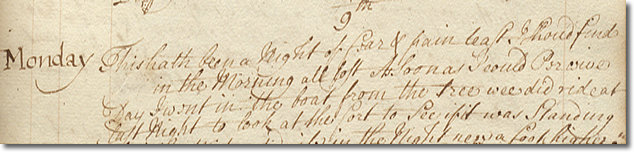 9th
Monday This hath been a Night of fear & pain least I should find
in the Morning all lost As Soon as I could Perceive
Day I went in the boat from the tree wee did ride at
last Night to look at the fort to See if it was Standing
in the Night near a foot higher